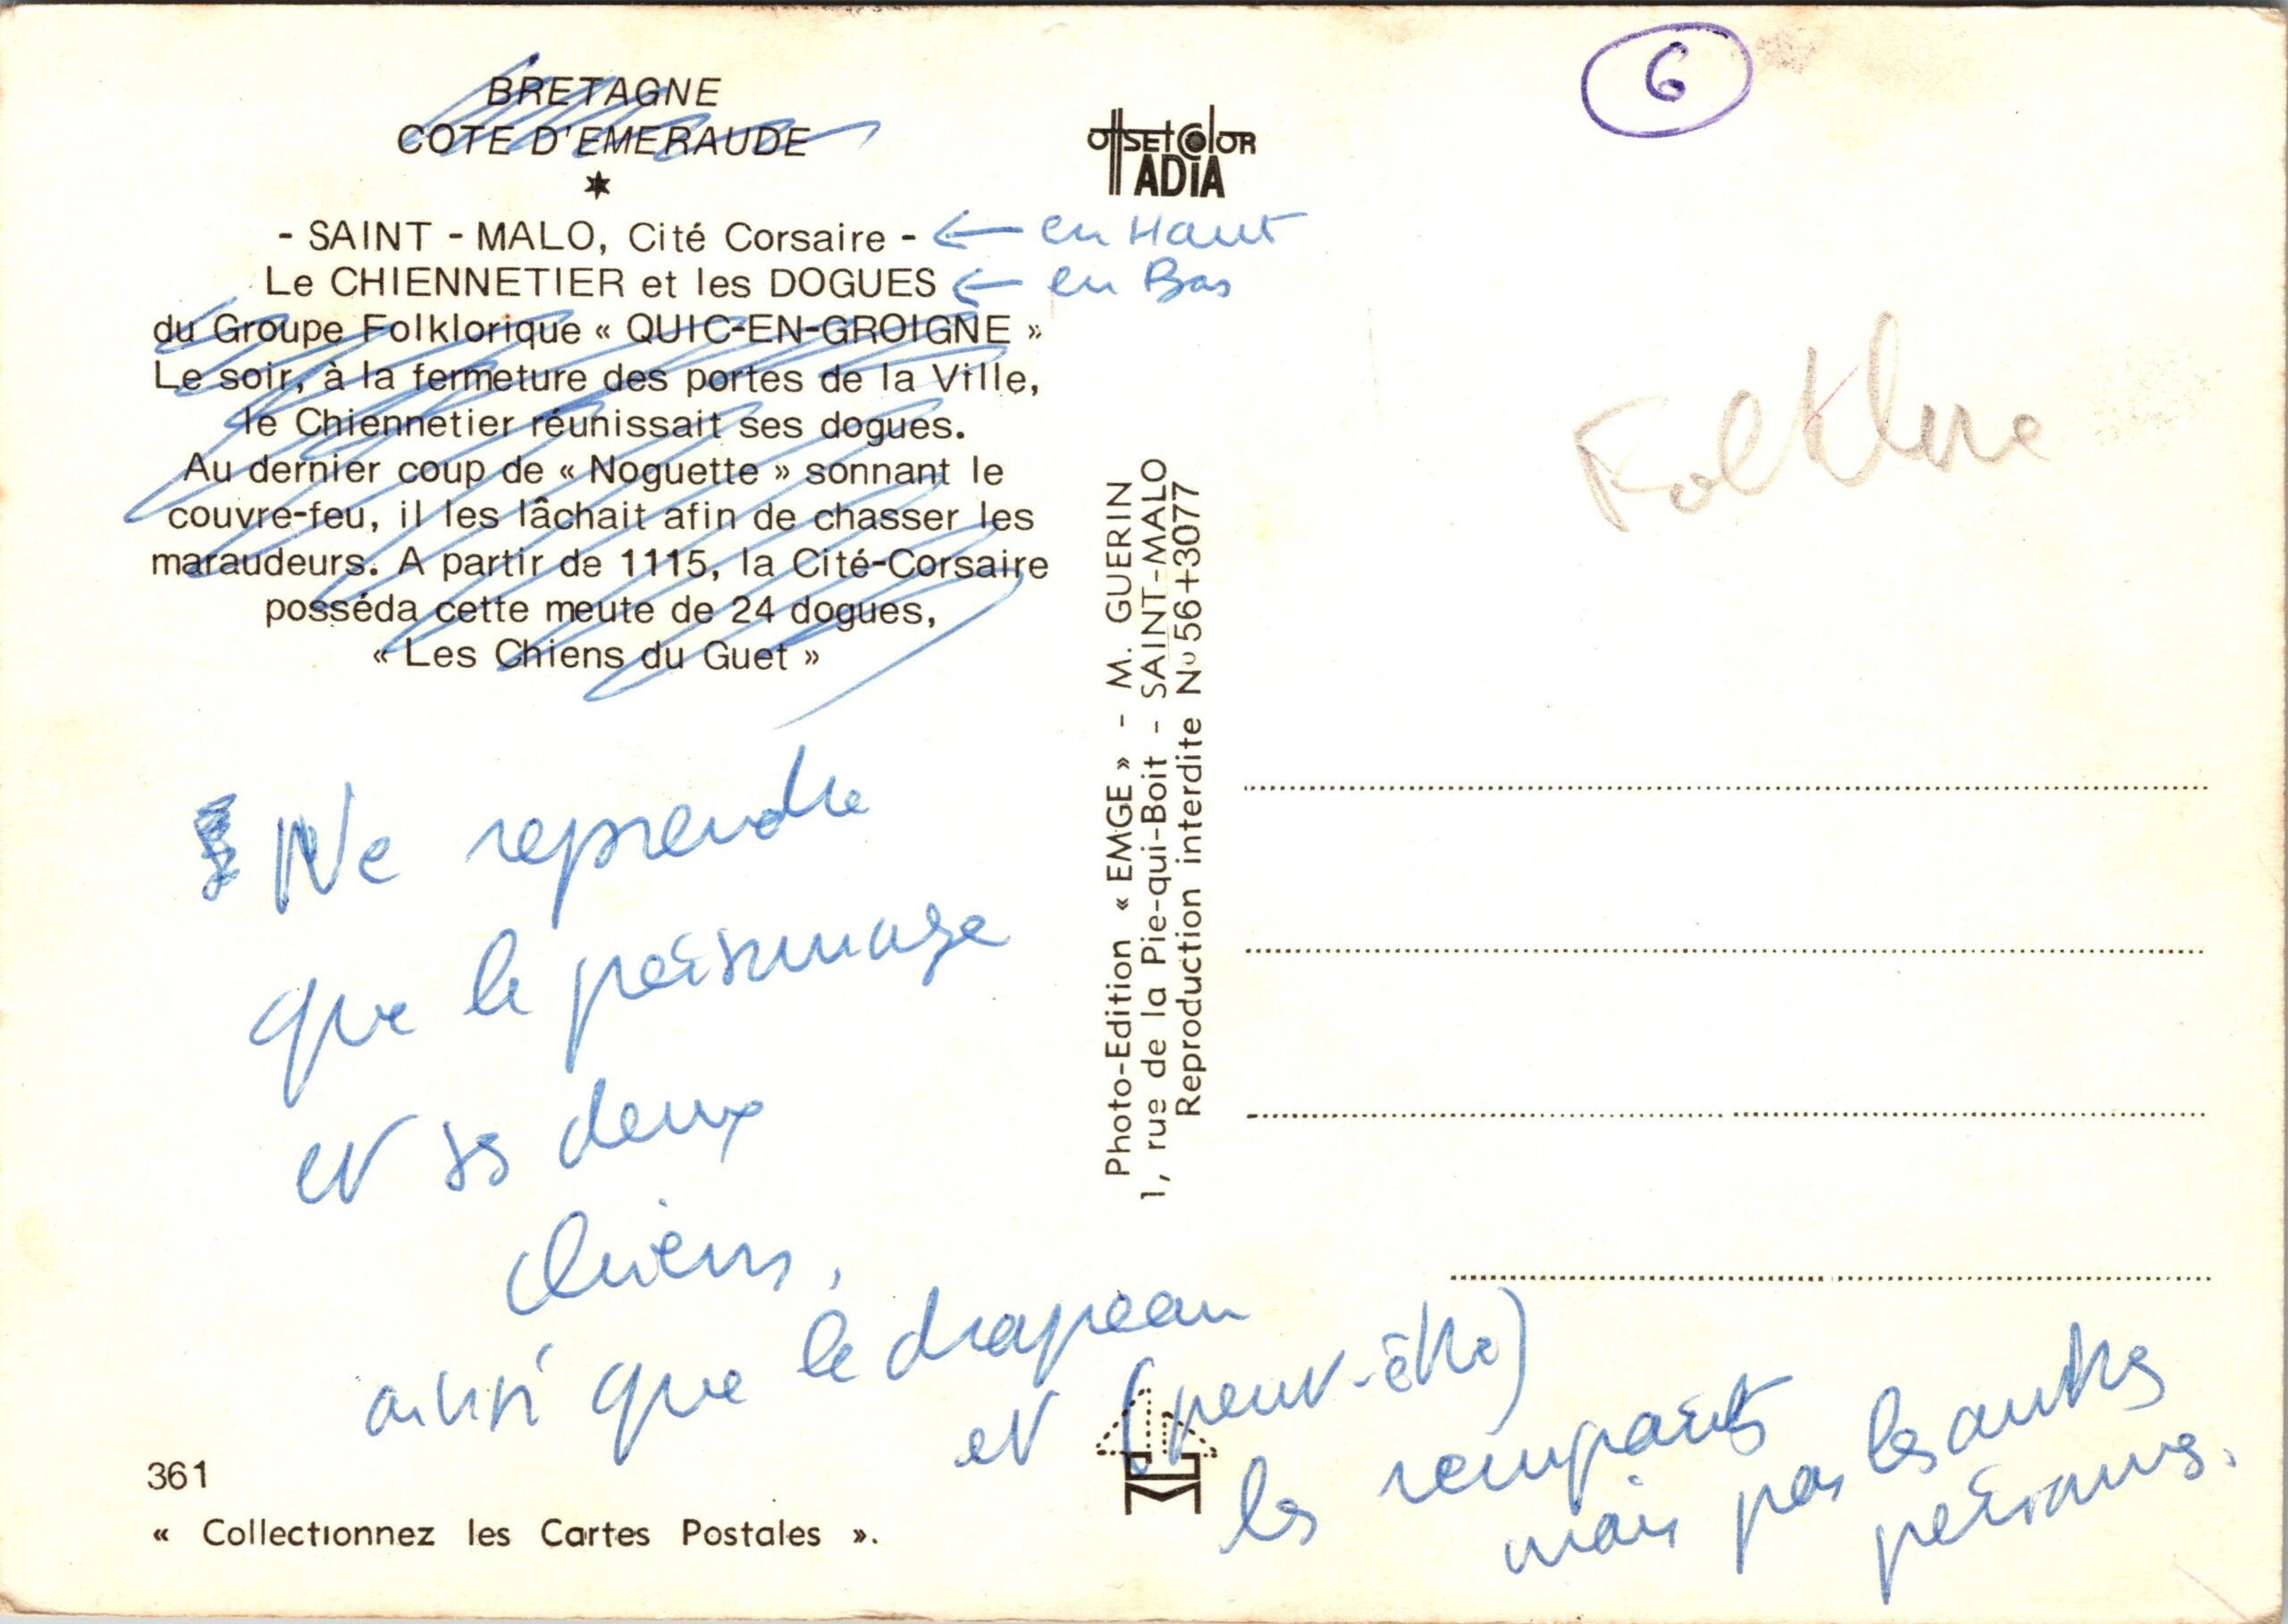 BRETAGNE
COTE D'EMERAUDE
- SAINT - MALO, Cité Corsaire - ← en Haut
Le CHIENNETIER et les DOGUES ← en Bas
du Groupe Folklorique « QUIC-EN-GROIGNE »
Le soir, à la fermeture des portes de la Ville,
le Chiennetier réunissait ses dogues.
Au dernier coup de « Noguette » sonnant le
couvre-feu, il les lâchait afin de chasser les
maraudeurs. A partir de 1115, la Cité-Corsaire
posséda cette meute de 24 dogues,
« Les Chiens du Guet »
Ne reprendre
que le personnage
et ses deux
chiens,
ainsi que le drapeau
et (peut-être)
les remparts
mais pas les autres
personnes.
361
« Collectionnez les Cartes Postales ».
offset color
ADIA
Photo-Edition « EMGE » - M. GUERIN
1, rue de la Pie-qui-Boit - SAINT-MALO
Reproduction interdite No 56+3077
6
Folklore